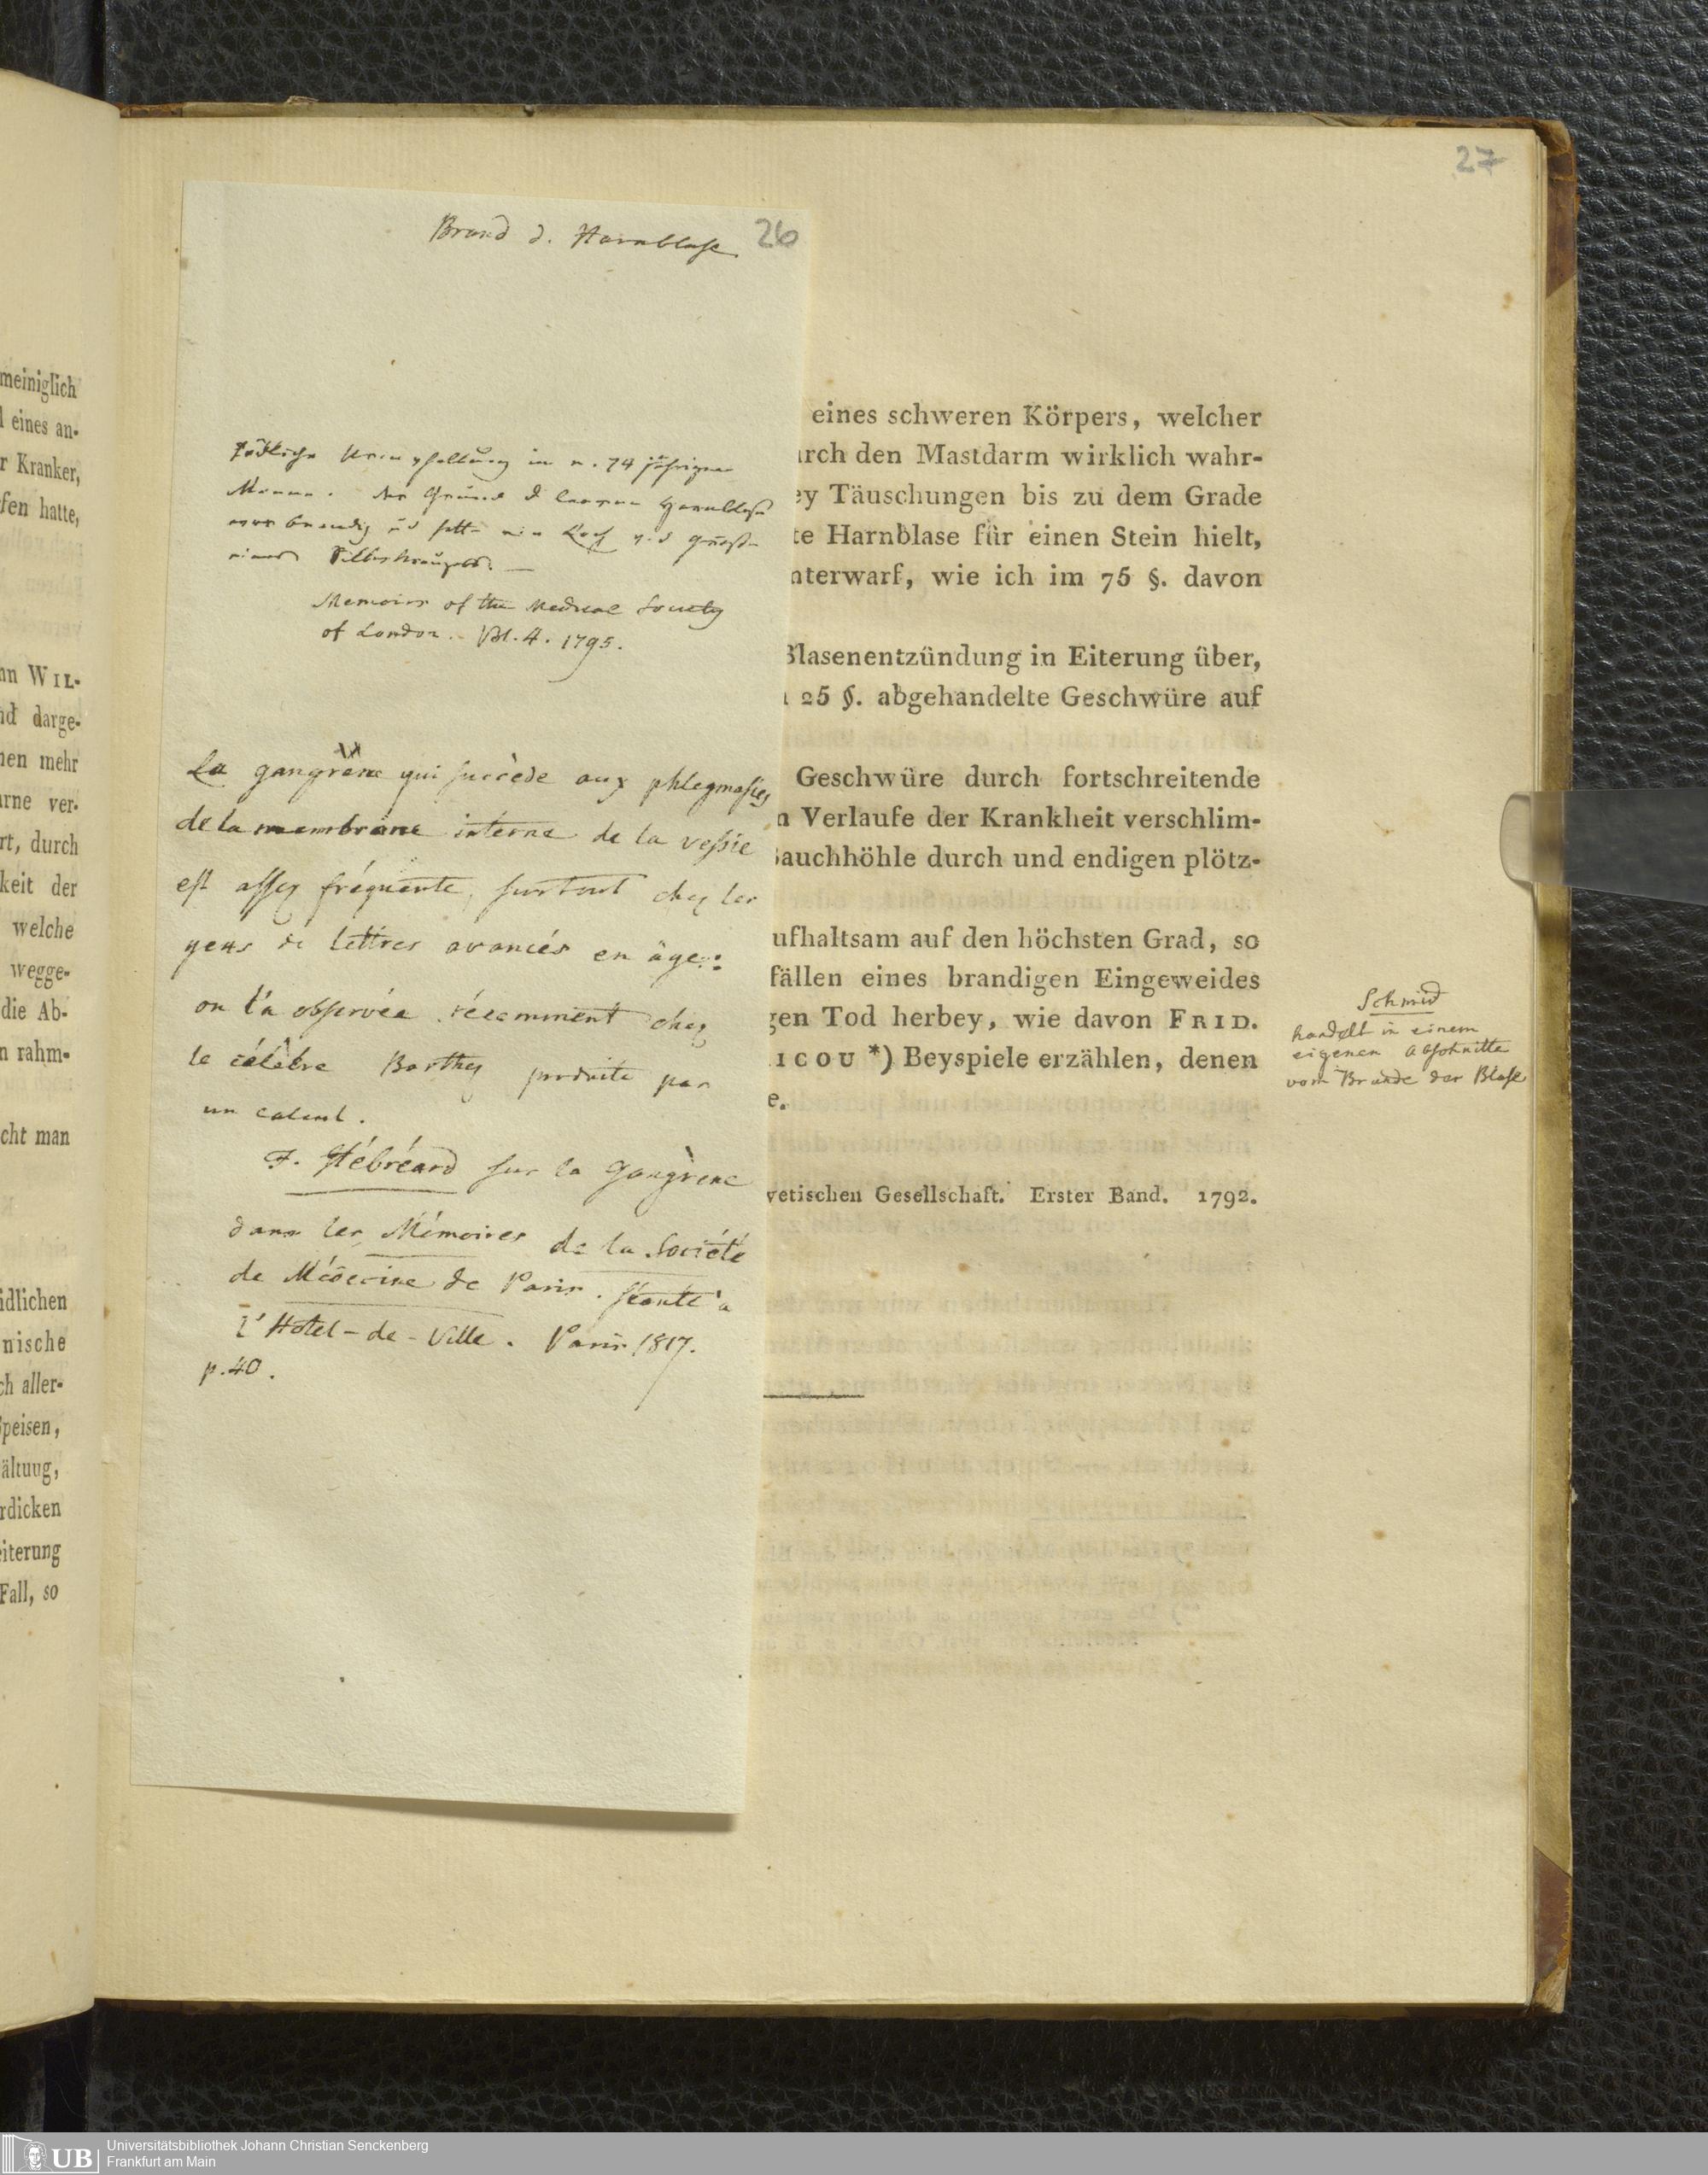 meiniglich
l eines an-
r Kranker,
fen hatte,
nn WIL-
nd darge-
nen mehr
arne ver-
rt, durch
keit der
welche
wegge-
die Ab-
n rahm-
cht man
idlichen
nische
ch aller-
Speisen,
ältung,
rdicken
eiterung
Fall, so
27
Brand d. Harnblase 26
Tödliche Urinverhaltung in e. 74 jährigen
Manne. Der Grund d leeren Harnblase
war brandig ud hatte ein Loch v. d Größe
eines
Memoirs of the Medical Society
of London. Vol. 4. 1795.
La gangrène qui succède aux phlegmasies
de la membrane interne de la vessie
est assez fréquente, surtout chez les
gens de lettres avancés en âge:
on l'a observée récemment chez
le célèbre Barthez produite par
un calcul.
F. Hébréard sur la Gangrène
dans les Mémoires de la Société
de Médecine de Paris. séante à
l'Hotel-de-Ville. Paris 1817.
p. 40.
eines schweren Körpers, welcher
urch den Mastdarm wirklich wahr-
ey Täuschungen bis zu dem Grade
te Harnblase für einen Stein hielt,
nterwarf, wie ich im 75 §. davon
Blasenentzündung in Eiterung über,
25 §. abgehandelte Geschwüre auf
Geschwüre durch fortschreitende
n Verlaufe der Krankheit verschlim-
Bauchhöhle durch und endigen plötz-
ufhaltsam auf den höchsten Grad, so
fällen eines brandigen Eingeweides
gen Tod herbey, wie davon FRID.
ICOU *) Beyspiele erzählen, denen
e.
vetischen Gesellschaft. Erster Band. 1792.
Schmid
handelt in einem
eigenen Abschnitte
vom Brande der Blase
UB
Universitätsbibliothek Johann Christian Senckenberg
Frankfurt am Main